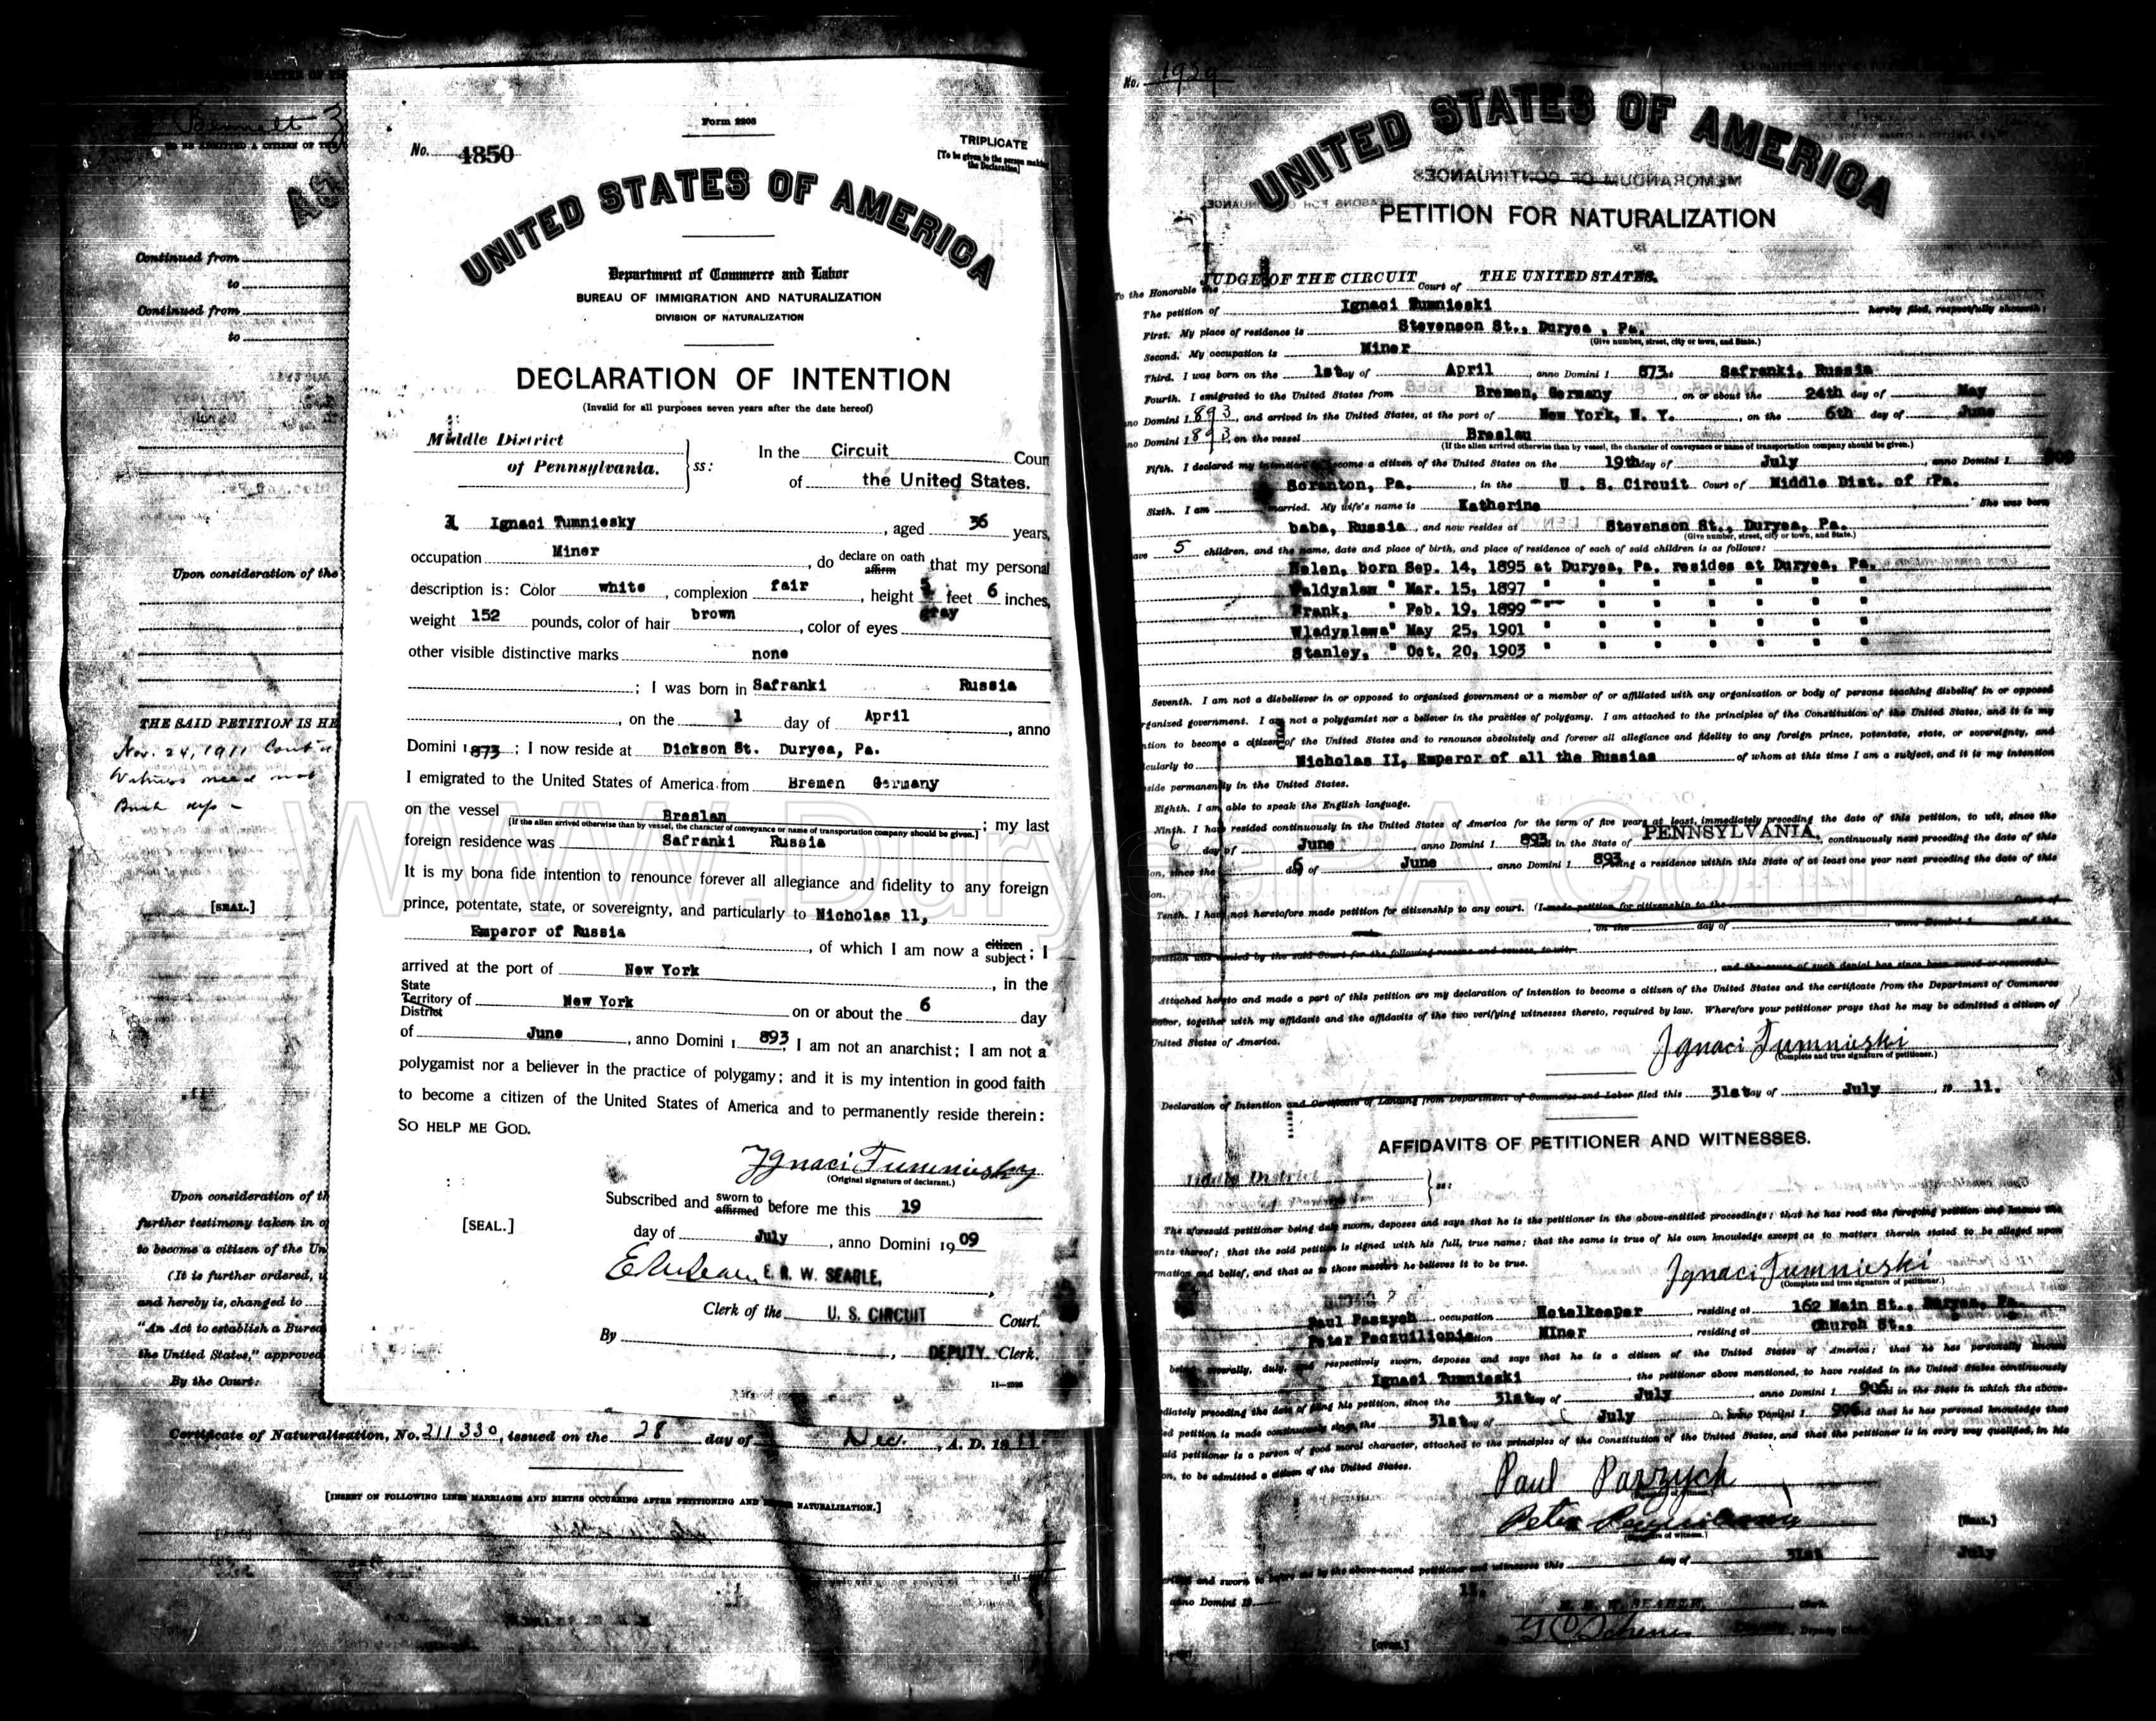 Bennett
TO BE ADMITTED A CITIZEN OF THE
Continued from
to
Continued from
to
Upon consideration of the
THE SAID PETITION IS HE
Nov. 24, 1911 Cont'd
Witness need not
[SEAL.]
Upon consideration of th
further testimony taken in o
to become a citizen of the Un
(It is further ordered, u
and hereby is, changed to
"An Act to establish a Burea
the United States," approved
By the Court:
Certificate of Naturalization, No. 211330, issued on the 28 day of Dec. , A. D. 1911
[INSERT ON FOLLOWING LINES MARRIAGES AND BIRTHS OCCURRING AFTER PETITIONING AND NATURALIZATION.]
Form 2203
No. 4850
TRIPLICATE
[To be given to the person making
the Declaration]
UNITED STATES OF AMERICA
Department of Commerce and Labor
BUREAU OF IMMIGRATION AND NATURALIZATION
DIVISION OF NATURALIZATION
DECLARATION OF INTENTION
(Invalid for all purposes seven years after the date hereof)
Middle District
of Pennsylvania.
ss:
In the Circuit Court
of the United States.
I, Ignaci Tumniesky, aged 36 years,
occupation Miner, do declare on oath affirm that my personal
description is: Color white, complexion fair, height 5 feet 6 inches,
weight 152 pounds, color of hair brown, color of eyes gray
other visible distinctive marks none
; I was born in Safranki Russia
, on the 1 day of April, anno
Domini 1873; I now reside at Dickson St. Duryea, Pa.
I emigrated to the United States of America from Bremen Germany
on the vessel Breslan ; my last
[If the alien arrived otherwise than by vessel, the character of conveyance or name of transportation company should be given.]
foreign residence was Safranki Russia
It is my bona fide intention to renounce forever all allegiance and fidelity to any foreign
prince, potentate, state, or sovereignty, and particularly to Nicholas 11,
Emperor of Russia, of which I am now a citizen subject; I
arrived at the port of New York, in the
State
Territory of New York on or about the 6 day
District
of June, anno Domini 1893, I am not an anarchist; I am not a
polygamist nor a believer in the practice of polygamy; and it is my intention in good faith
to become a citizen of the United States of America and to permanently reside therein:
SO HELP ME GOD.
Ignaci Tumniesky
(Original signature of declarant.)
Subscribed and sworn to affirmed before me this 19
[SEAL.]
day of July, anno Domini 1909
E. R. W. SEARLE,
Clerk of the U. S. CIRCUIT Court.
By , DEPUTY Clerk.
www.DuryeaPA.Com
No. 1939
UNITED STATES OF AMERICA
MEMORANDUM OF CONTINUANCES
PETITION FOR NATURALIZATION
To the Honorable the JUDGE OF THE CIRCUIT Court of THE UNITED STATES.
The petition of Ignaci Tumnieski hereby filed, respectfully showeth:
First. My place of residence is Stevenson St., Duryea, Pa.
(Give number, street, city or town, and State.)
Second. My occupation is Miner
Third. I was born on the 1st day of April, anno Domini 1873, Safranki, Russia
Fourth. I emigrated to the United States from Bremen, Germany, on or about the 24th day of May
no Domini 1893, and arrived in the United States, at the port of New York, N. Y., on the 6th day of June
no Domini 1893 on the vessel Breslau
(If the alien arrived otherwise than by vessel, the character of conveyance or name of transportation company should be given.)
Fifth. I declared my intention to become a citizen of the United States on the 19th day of July, anno Domini 1909
Scranton, Pa., in the U. S. Circuit Court of Middle Dist. of Pa.
Sixth. I am married. My wife's name is Katherine She was born
baba, Russia, and now resides at Stevenson St., Duryea, Pa.
(Give number, street, city or town, and State.)
ave 5 children, and the name, date and place of birth, and place of residence of each of said children is as follows:
Helen, born Sep. 14, 1895 at Duryea, Pa. resides at Duryea, Pa.
Waldyslaw " Mar. 15, 1897 " " " " "
Frank, " Feb. 19, 1899 " " " " "
Wladyslawa " May 25, 1901 " " " " "
Stanley, " Oct. 20, 1903 " " " " "
Seventh. I am not a disbeliever in or opposed to organized government or a member of or affiliated with any organization or body of persons teaching disbelief in or opposed
rganized government. I am not a polygamist nor a believer in the practice of polygamy. I am attached to the principles of the Constitution of the United States, and it is my
ntion to become a citizen of the United States and to renounce absolutely and forever all allegiance and fidelity to any foreign prince, potentate, state, or sovereignty, and
icularly to Nicholas II, Emperor of all the Russias of whom at this time I am a subject, and it is my intention
side permanently in the United States.
Eighth. I am able to speak the English language.
Ninth. I have resided continuously in the United States of America for the term of five years at least, immediately preceding the date of this petition, to wit, since the
6 day of June, anno Domini 1893, in the State of PENNSYLVANIA, continuously next preceding the date of this
ion, since the 6 day of June, anno Domini 1893, being a residence within this State of at least one year next preceding the date of this
ion.
Tenth. I have not heretofore made petition for citizenship to any court. (I made petition for citizenship to the Court of
on the day of and the
petition was denied by the said Court for the following reasons and causes, to wit,
, and the cause of such denial has since been cured or removed.)
Attached hereto and made a part of this petition are my declaration of intention to become a citizen of the United States and the certificate from the Department of Commerce
Labor, together with my affidavit and the affidavits of the two verifying witnesses thereto, required by law. Wherefore your petitioner prays that he may be admitted a citizen of
United States of America.
Ignaci Tumnieski
(Complete and true signature of petitioner.)
Declaration of Intention and Certificate of Landing from Department of Commerce and Labor filed this 31st day of July, 1911.
AFFIDAVITS OF PETITIONER AND WITNESSES.
Middle District
ss:
The aforesaid petitioner being duly sworn, deposes and says that he is the petitioner in the above-entitled proceedings; that he has read the foregoing petition and knows the
ents thereof; that the said petition is signed with his full, true name; that the same is true of his own knowledge except as to matters therein stated to be alleged upon
rmation and belief, and that as to those matters he believes it to be true.
Ignaci Tumnieski
(Complete and true signature of petitioner.)
Paul Parzych, occupation Hotelkeeper, residing at 162 Main St., Duryea, Pa.
Peter occupation Miner, residing at Church St.,
being severally, duly, and respectively sworn, deposes and says that he is a citizen of the United States of America; that he has personally known
Ignaci Tumnieski, the petitioner above mentioned, to have resided in the United States continuously
diately preceding the date of filing his petition, since the 31st day of July, anno Domini 1906 in the State in which the above-
ed petition is made continuously since the 31st day of July anno Domini 1906 and that he has personal knowledge that
aid petitioner is a person of good moral character, attached to the principles of the Constitution of the United States, and that the petitioner is in every way qualified, in his
on, to be admitted a citizen of the United States.
Paul Parzych
Peter
(Signature of witness.)
[SEAL.]
and sworn to before me by the above-named petitioner and witnesses this day of 31st July
anno Domini 19 11.
E. R. W. SEARLE, Clerk.
Deputy Clerk.
[OVER.]